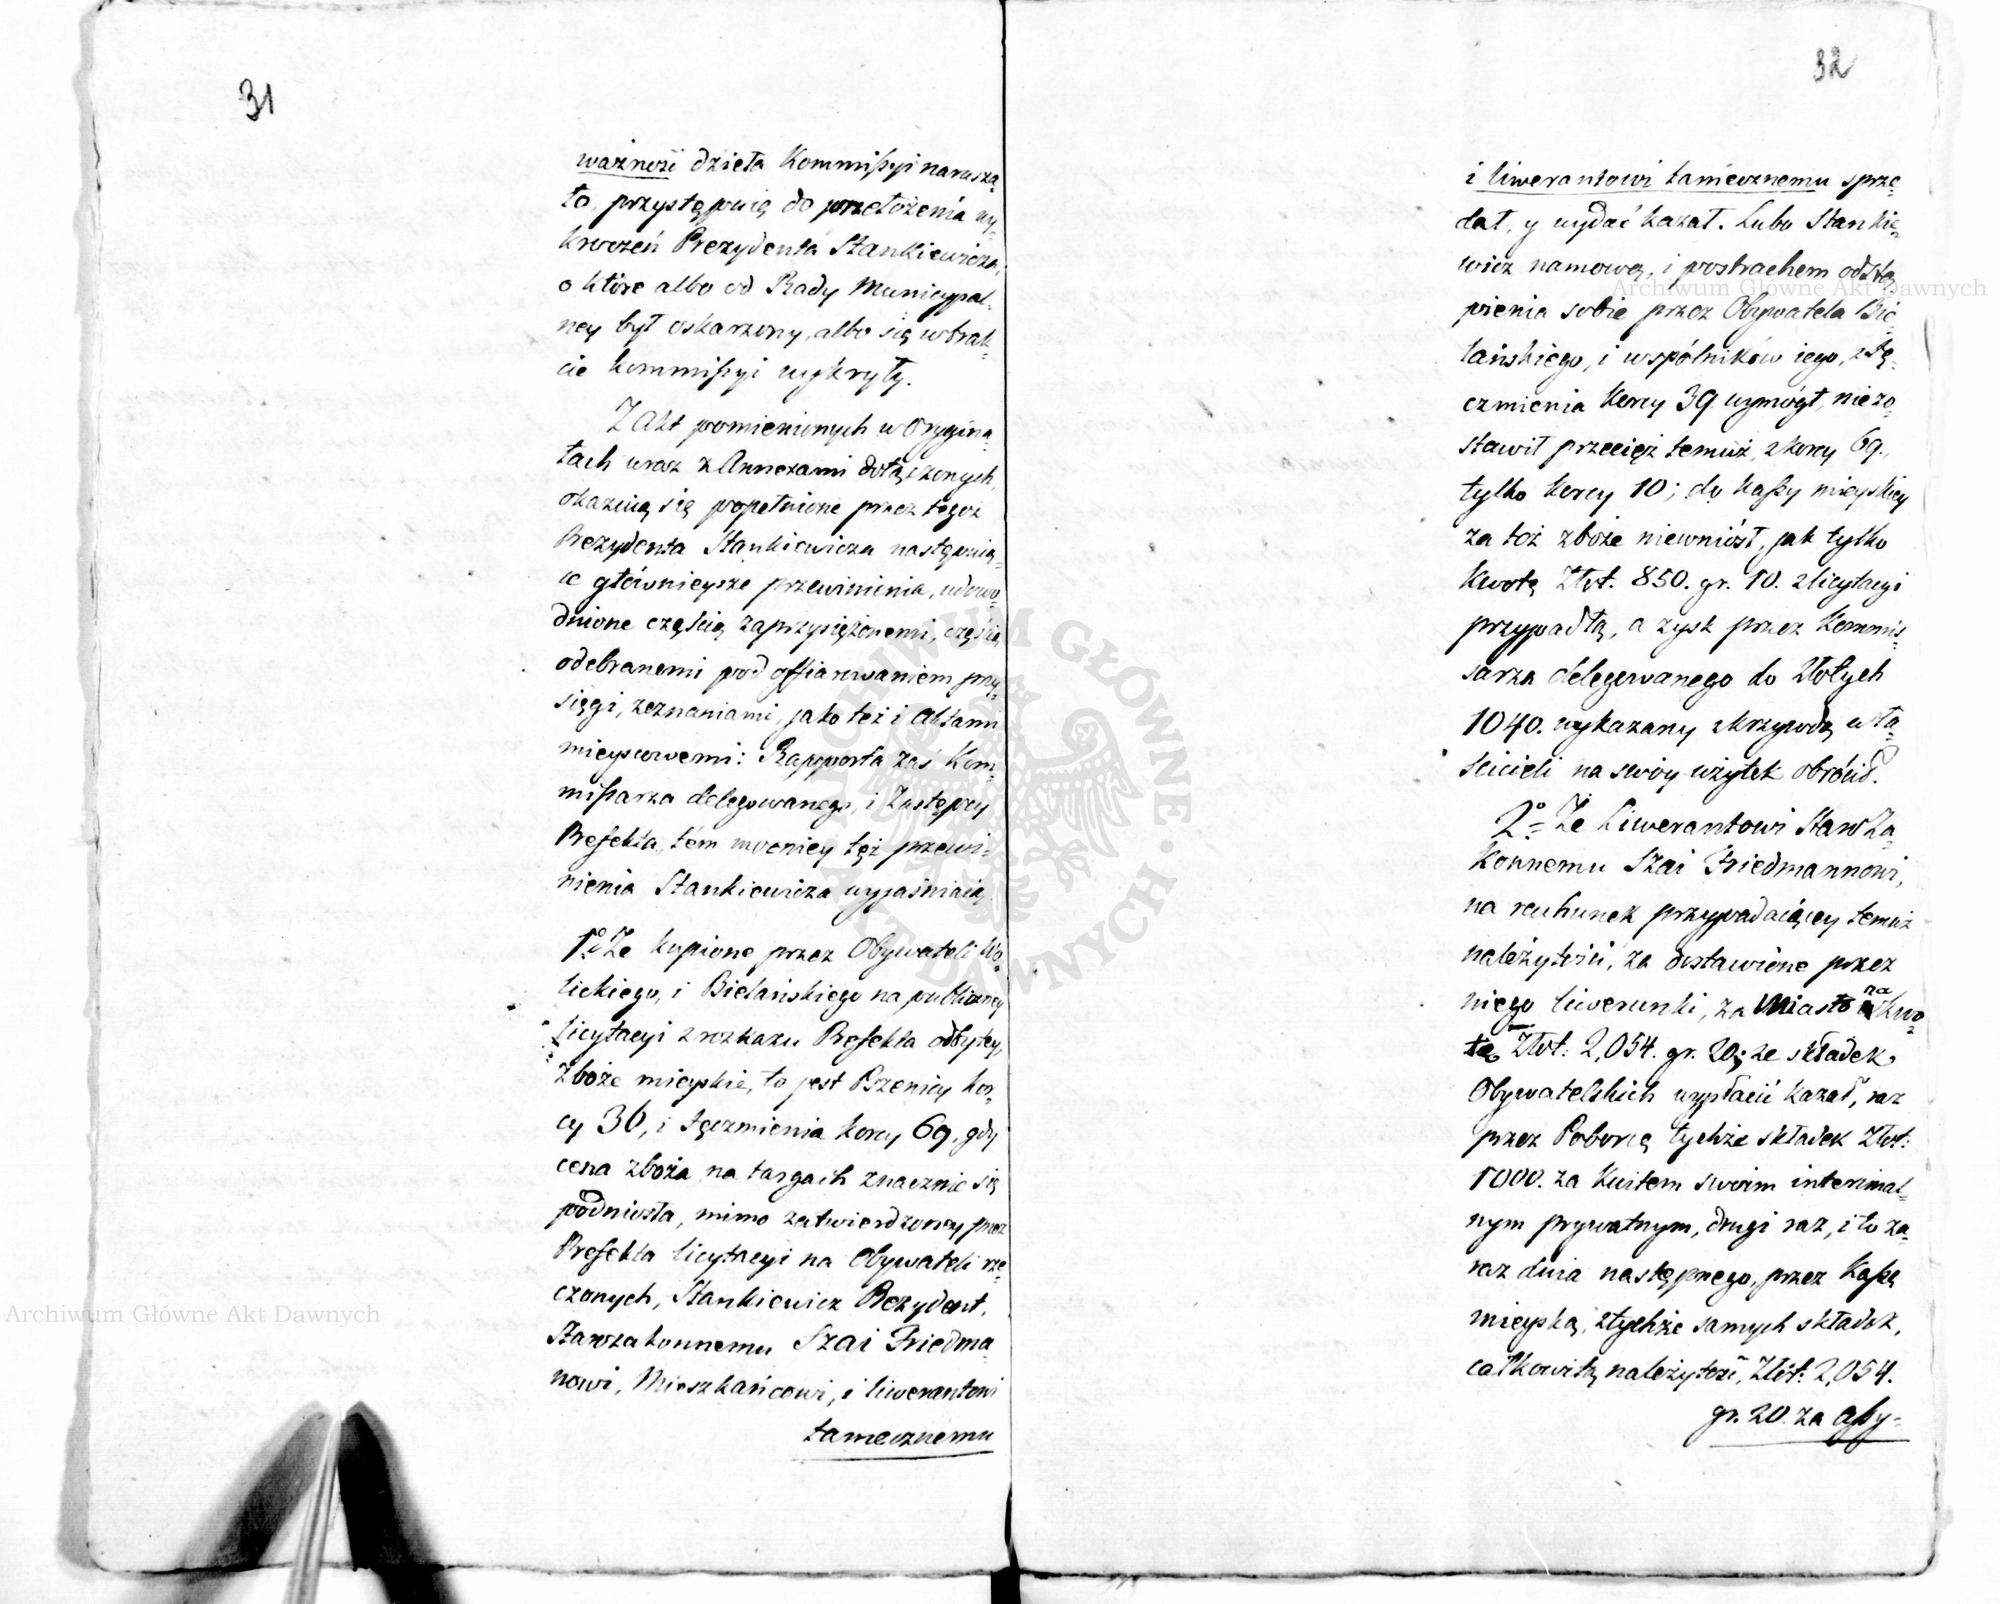 31
ważność dzieła Kommissyi narusza
ło, przystępuię do przełożenia wy-
kroczeń Prezydenta Stankiewicza,
o które albo od Rady Municypal-
ney był oskarżony, albo się w trak-
cie Kommissyi wykryły.
Z Akt pomienionych w Orygina-
łach wraz z Annexami dołączonych,
okazuią się popełnione przez tegoż
Prezydenta Stankiewicza następuią-
ce głównieysze przewinienia, udowo-
dnione częścią zaprzysiężonemi, częścią
odebranemi pod offiarowaniem przy-
sięgi, zeznaniami, jako też i Aktami
mieyscowemi: Rapporta zaś Kom-
missarza delegowanego, i Zastępcy
Prefekta, tém mocniey też przewi-
nienia Stankiewicza wyjaśniaią
1o. Że kupione przez Obywateli Wo-
lickiego, i Bielańskiego na publiczney
licytacyi z rozkazu Prefekta odbytey,
Zboże mieyskie, to jest Pszenicy kor-
cy 36, i Jęczmienia korcy 69, gdy
cena zboża na targach znacznie się
podniosła, mimo zatwierdzoney przez
Prefekta licytacyi na Obywateli rze-
czonych, Stankiewicz Prezydent,
Starozakonnemu Szai Friedma-
nowi, Mieszkańcowi, i liwerantowi
tamecznemu
32
i liwerantowi tamecznemu sprze-
dał, y wydać kazał. Lubo Stankie-
wicz namową, i postrachem odstą-
pienia sobie przez Obywatela Bie-
lańskiego, i wspólników iego, z Ję-
czmienia Korcy 39 wymógł, niezo-
stawił przecież temuż, z korcy 69.,
tylko korcy 10; do kassy mieyskiey
za toż zboże niewniósł, jak tylko
kwotę Złot. 850. gr. 10. z licytacyi
przypadłą, a zysk przez Kommis-
sarza delegowanego do Złotych
1040. wykazany z krzywdą wła-
ścicieli na swóy użytek obrócił.
2o. Że Liwerantowi Staroza-
konnemu Szai Friedmannowi,
na rachunek przypadaiącey temuż
należytości, za dostawione przez
niego liwerunki, za Miasto na kwo-
tę Złot: 2,054. gr. 20; ze składek
Obywatelskich wypłacić kazał, raz
przez Poborcę tychże składek Złot:
1000. za Kwitem swoim interimal-
nym prywatnym, drugi raz, i to za-
raz dnia następnego, przez Kassę
mieyską, z tychże samych składek,
całkowitą należytość, Złot: 2,054.
gr. 20. za assy-
Archiwum Główne Akt Dawnych
Archiwum Główne Akt Dawnych
ARCHIWUM GŁÓWNE AKT DAWNYCH